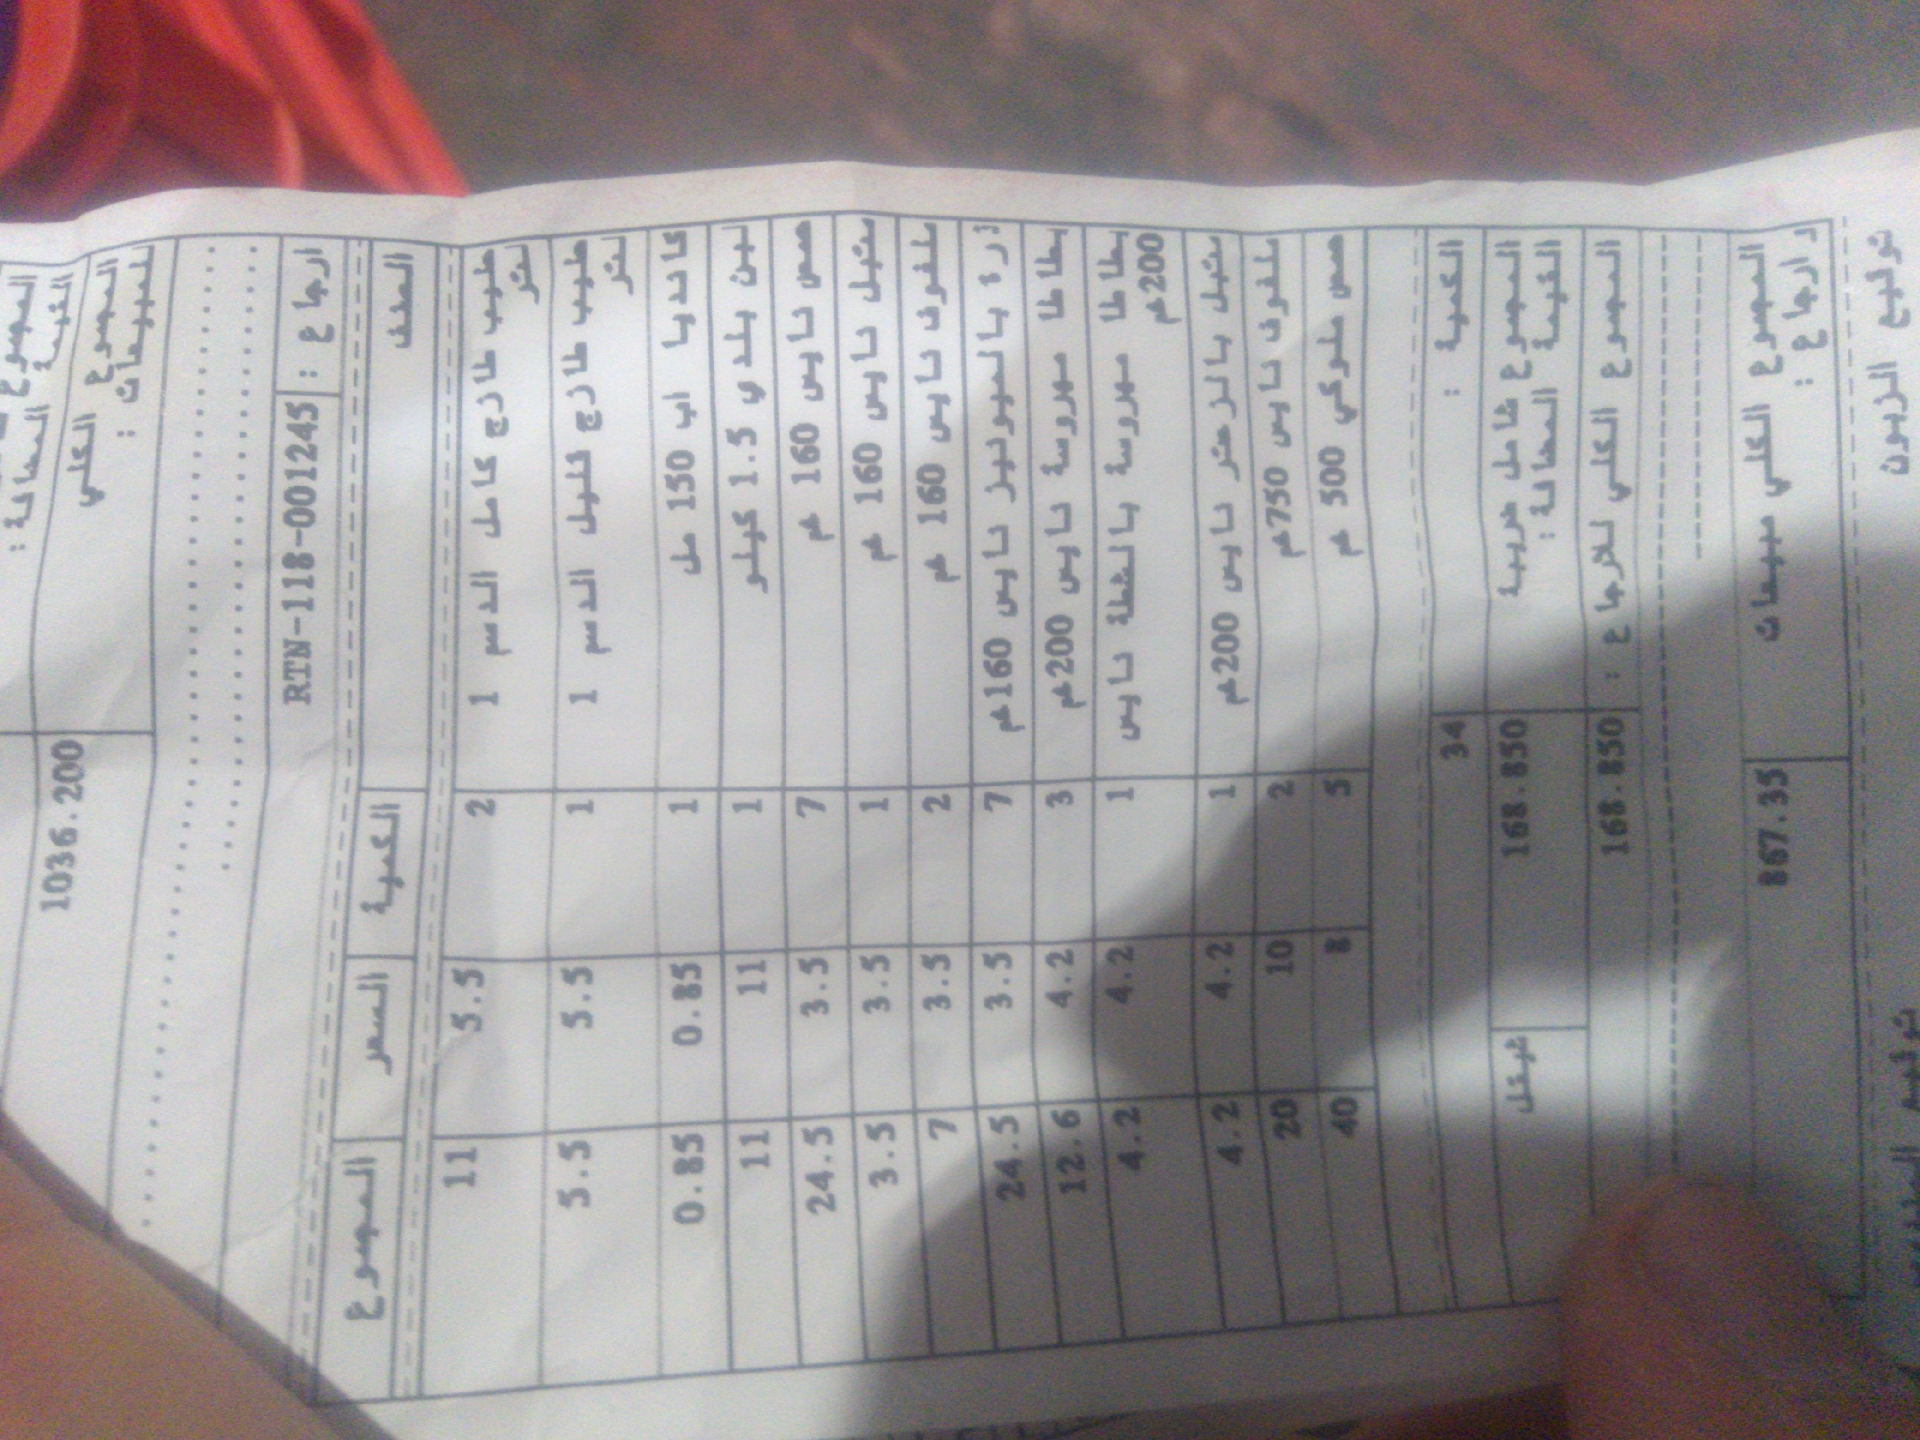 المجموع
القيمة المضافة :
المجموع الكلي
للمبيعات : 1036.200
ارجاع : RTN-118-001245
الصنف الكمية السعر المجموع
حليب طازج كامل الدسم 1 2 5.5 11
لتر
حليب طازج قليل الدسم 1 1 5.5 5.5
لتر
كانديا اب 150 مل 1 0.85 0.85
لبن بلدي 1.5 كيلو 1 11 11
حمص نايس 160 غم 7 3.5 24.5
متبل نايس 160 غم 1 3.5 3.5
ملفوف نايس 160 غم 2 3.5 7
ذرة بالميونيز نايس 160غم 7 3.5 24.5
بطاطا مهروسة نايس 200غم 3 4.2 12.6
بطاطا مهروسة بالشطة نايس 1 4.2 4.2
200غم
متبل بالزعتر نايس 200غم 1 4.2 4.2
ملفوف نايس 750غم 2 10 20
حمص ملوكي 500 غم 5 8 40
الكمية : 34
المجموع شامل ضريبة 168.850 شيقل
القيمة المضافة :
المجموع الكلي للارجاع : 168.850
المجموع الكلي مبيعات 867.35
وارجاع :
توقيع الزبون